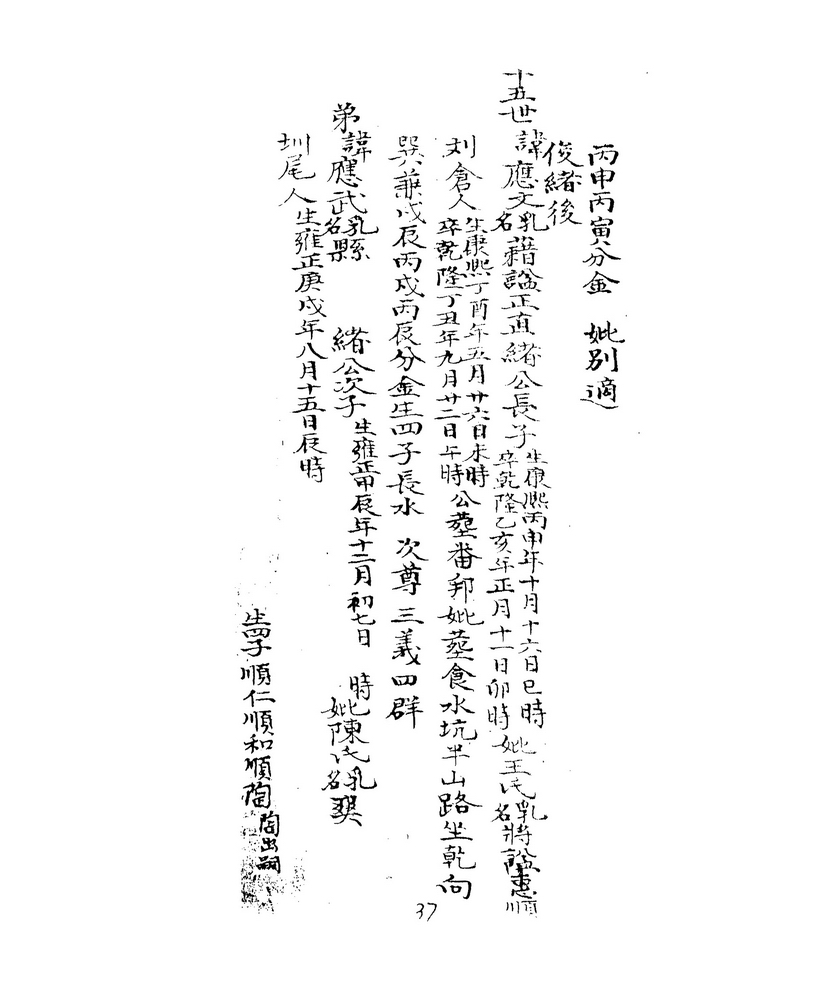 丙申丙寅分金 妣別適
俊緒後
十五世 諱應文乳名藉諡正直緒公長子生康熙丙申年十月十六日巳時卒乾隆乙亥年正月十一日卯時妣王氏乳名蔣諡惠順
刘倉人生康熙丁酉年五月廿六日未時卒乾隆丁丑年九月廿二日午時公塟番邦妣塟食水坑半山路坐乾向
巽兼戌辰丙戌丙辰分金生四子長水 次尊 三義 四群
弟諱應武乳名縣 緒公次子生雍正甲辰年十二月初七日 時妣陳氏乳名
圳尾人生雍正庚戌年八月十五日辰時
生四子順仁順和順陶陶出嗣
37